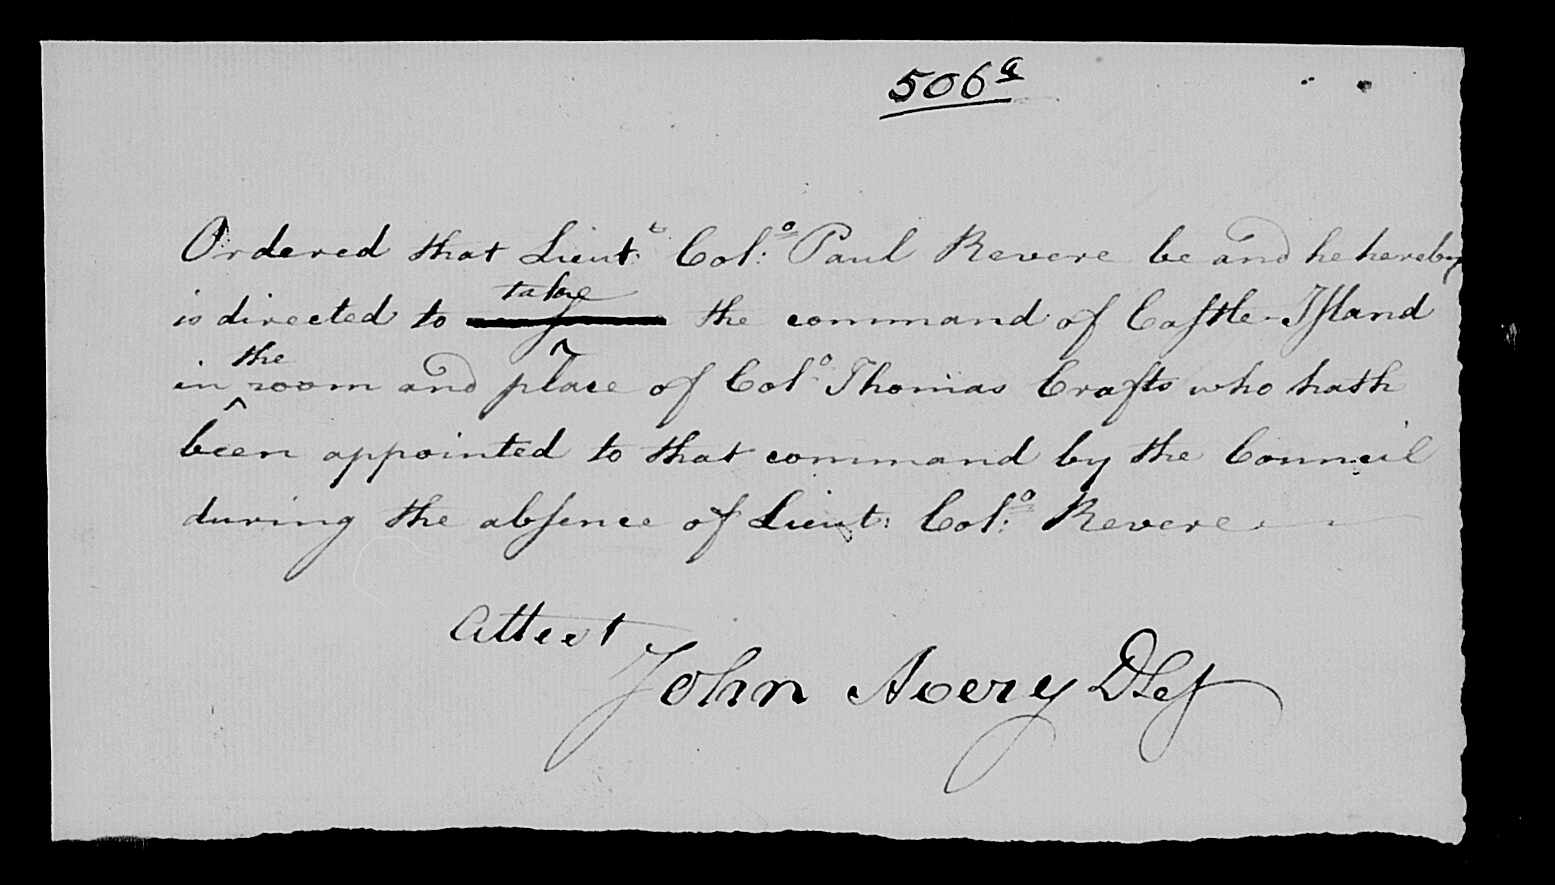 506a
Ordered that Lieut. Colo. Paul Revere be and he hereby
is directed to take the command of Castle-Island
in the room and place of Colo. Thomas Crafts who hath
been appointed to that command by the Council
during the absence of Lieut: Col:o Revere
Attest
John Avery D Sey